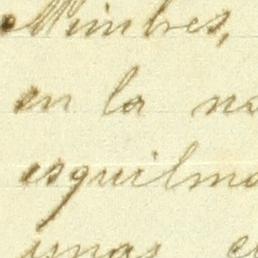 Mimbres,
en la no
esquilmo
unas e